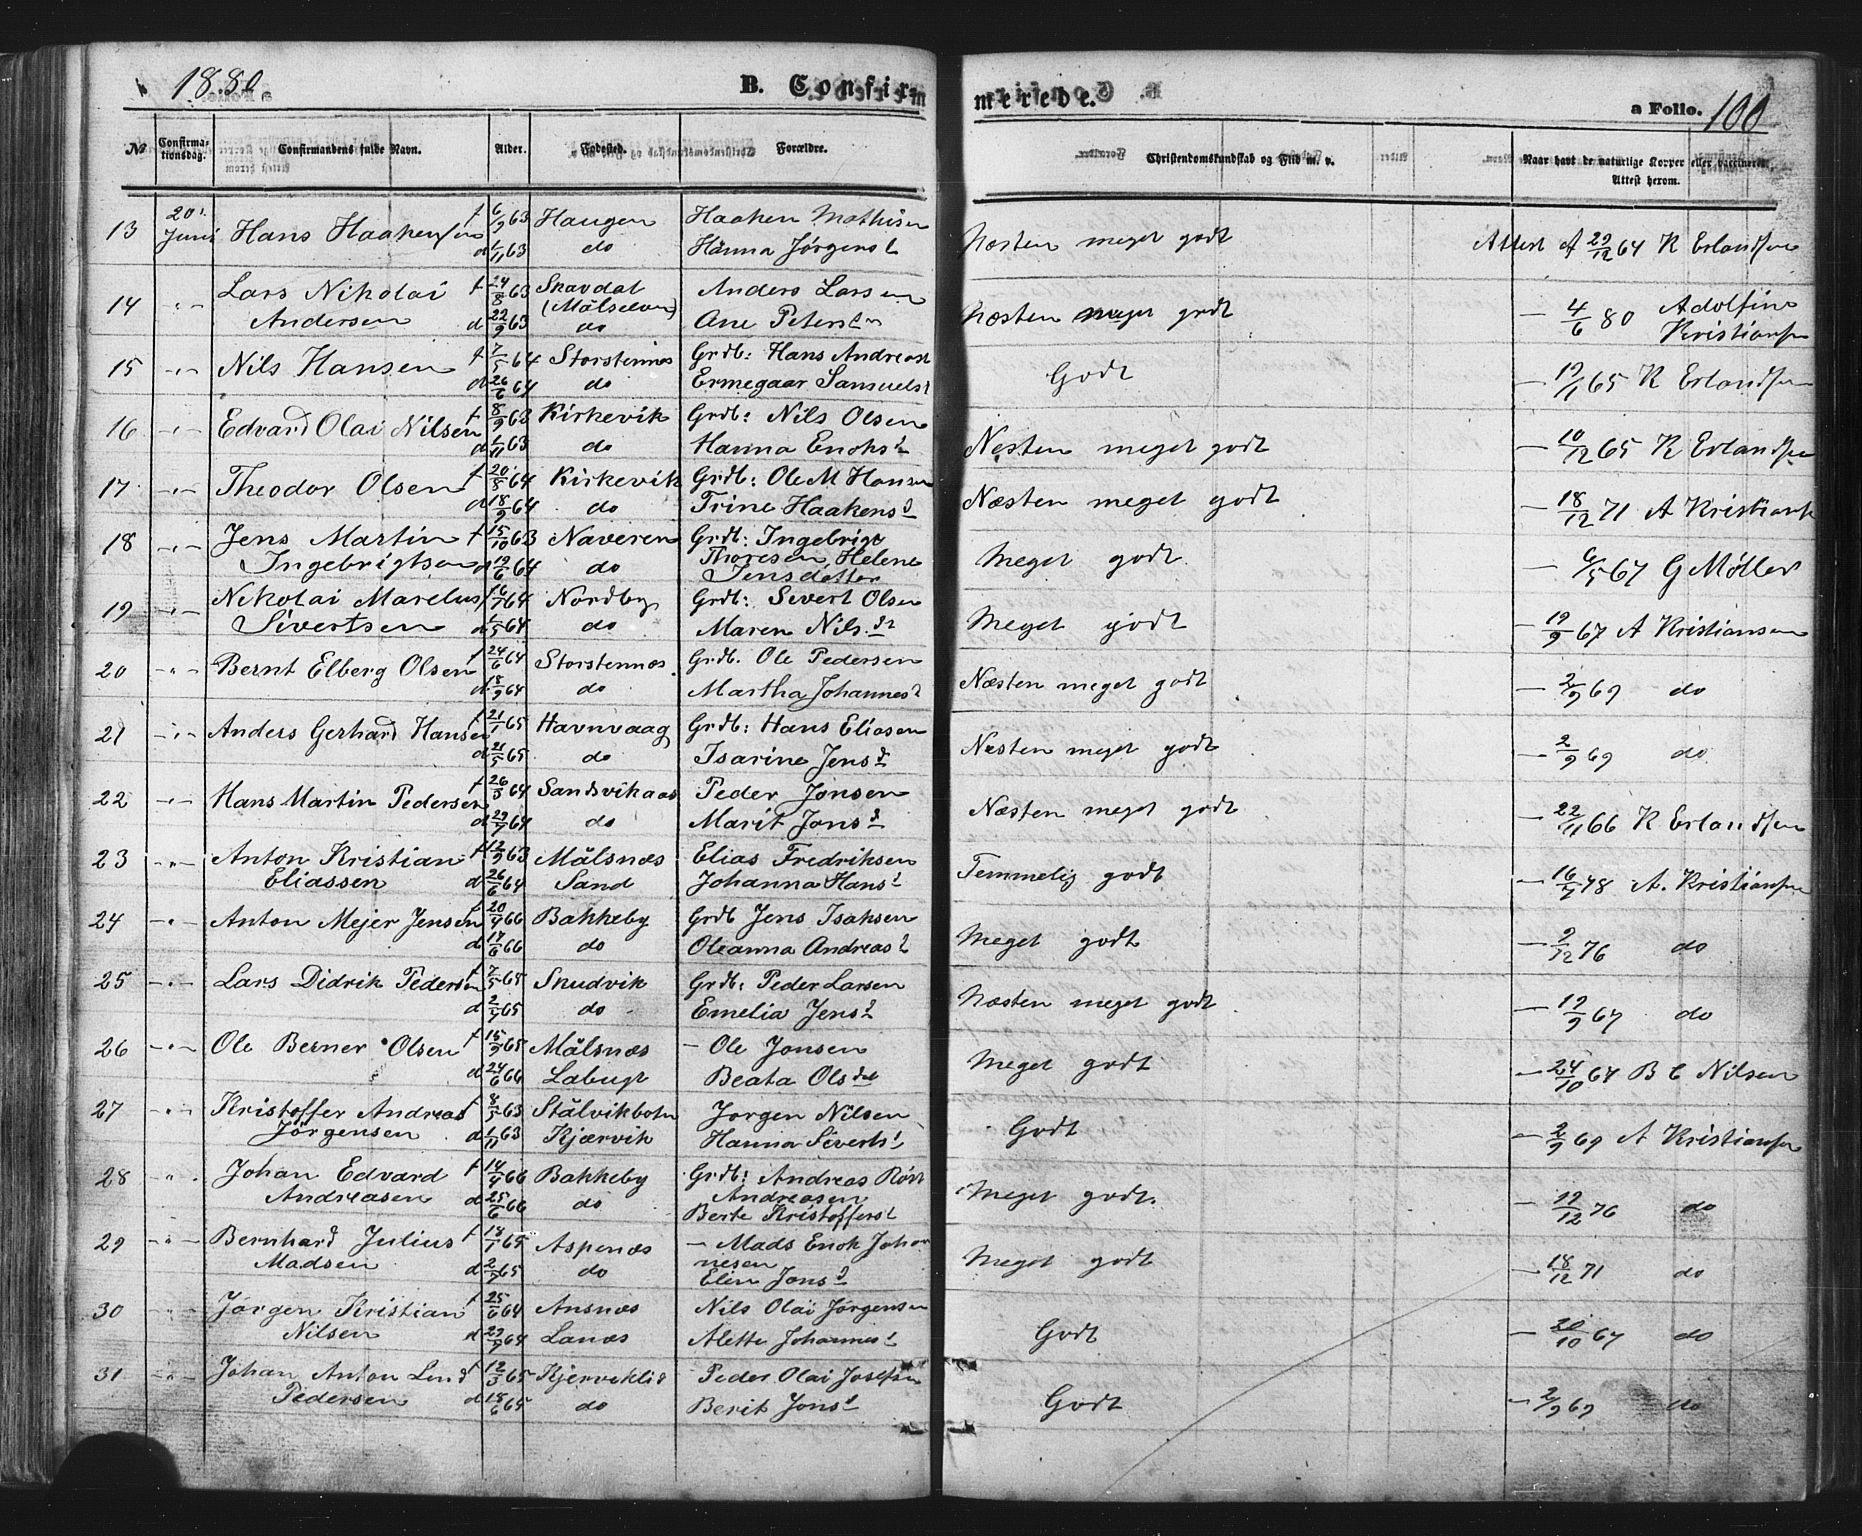 1880 B. Confirmerede. a Folio. 100
No Confirmationsdag. Confirmandens fulde Navn. Alder. Fødested. Forældre. Christendomskundskab og Flid m. v. Naar havt de naturlige Kopper eller vaccineret. Attest herom.
13 20. Juni Hans Haakensen f 6/9 63 d 1/11 63 Haugen do Haaken Mathisen Hanna Jørgensd Næsten meget godt Attest A 29/12 64 K Erlandsen
14 -"- Lars Nikolai Andersen f 24/8 63 d 22/9 63 Skavdal (Målselven) do Anders Larsen Ane Petersdr Næsten meget godt - 4/6 80 Adolfine Kristiansen
15 -"- Nils Hansen f 7/5 64 d 26/6 64 Storstennes do Grdb: Hans Andreas Ermegaar Samuelsd Godt - 19/1 65 K Erlandsen
16 -"- Edvard Olai Nilsen f 8/9 63 d 1/11 63 Kirkevik do Grdb: Nils Olsen Hanna Enoksd Næsten meget godt - 10/12 65 K Erlandsen
17 -"- Theodor Olsen f 20/5 64 d 18/9 64 Kirkevik do Grdb: Ole M Hansen Trine Haakensd Næsten meget godt - 18/12 71 A Kristians
18 -"- Jens Martin Ingebrigtsen f 15/10 63 d 19/6 64 Naveren do Grdb: Ingebrigt Thoresen, Helene Jensdatter Meget godt - 6/5 67 G Møller
19 -"- Nikolai Marelus Sivertsen f 16/1 64 d 1/5 64 Nordby do Grdb: Sivert Olsen Maren Nils.dr Meget godt - 19/9 67 A Kristiansen
20 -"- Bernt Elberg Olsen f 24/6 64 d 18/9 64 Storstennæs do Grdb. Ole Pedersen Martha Johannesd Næsten meget godt - 2/9 69 do
21 -"- Anders Gerhard Hansen f 21/1 65 d 21/5 65 Havnvaag do Grdb: Hans Eliasen Isarine Jensd Næsten meget godt - 2/9 69 do
22 -"- Hans Martin Pedersen f 26/5 64 d 29/7 64 Sandsvikaas do Peder Jonsen Marit Jonsd Næsten meget godt - 22/11 66 K Erlandsen
23 -"- Anton Kristian Eliassen f 12/9 63 d 26/6 64 Målsnæs Sand Elias Fredriksen Johanna Hansd Temmelig godt - 16/7 78 A. Kristiansen
24 -"- Anton Mejer Jensen f 20/4 66 d 17/6 66 Bakkeby do Grdb Jens Isaksen Oleanna Andreasd Meget godt - 2/12 76 do
25 -"- Lars Didrik Pedersen f 7/5 65 d 2/7 65 Skudvik do Grdb: Peder Larsen Emelia Jensd Næsten meget godt - 19/9 67 do
26 -"- Ole Berner Olsen f 15/9 65 d 24/6 66 Målsnæs Labugt - Ole Jonsen Beata Olsdat Meget godt - 24/10 67 B C Nilsen
27 -"- Kristoffer Andreas Jörgensen f 8/5 63 d 1/11 63 Stålvikbotn Kjærvik Jørgen Nilsen Hanna Sivertsd Godt - 2/9 69 A Kristiansen
28 " Johan Edvard Andreasen f 14/4 66 d 25/6 66 Bakkeby do Grdb: Andreas Røst Andreasen Berte Kristoffersd Meget godt. - 19/12 76 do
29 -"- Bernhard Julius Madsen f 18/1 65 d 2/7 65 Aspenæs do - Mads Enok Johannesen Elen Jonsd Meget godt - 18/12 71 do
30 -"- Jørgen Kristian Nilsen f 25/6 64 d 29/7 64 Ansnæs Lanæs Nils Olai Jørgensen Alette Johannesd Godt - 20/10 67 do
31 -"- Johan Anton Lind Pedersen f 12/3 65 d 18/6 65 Kjerveklid do Peder Olai Josefsen Berit Jonsd Godt - 2/9 69 do